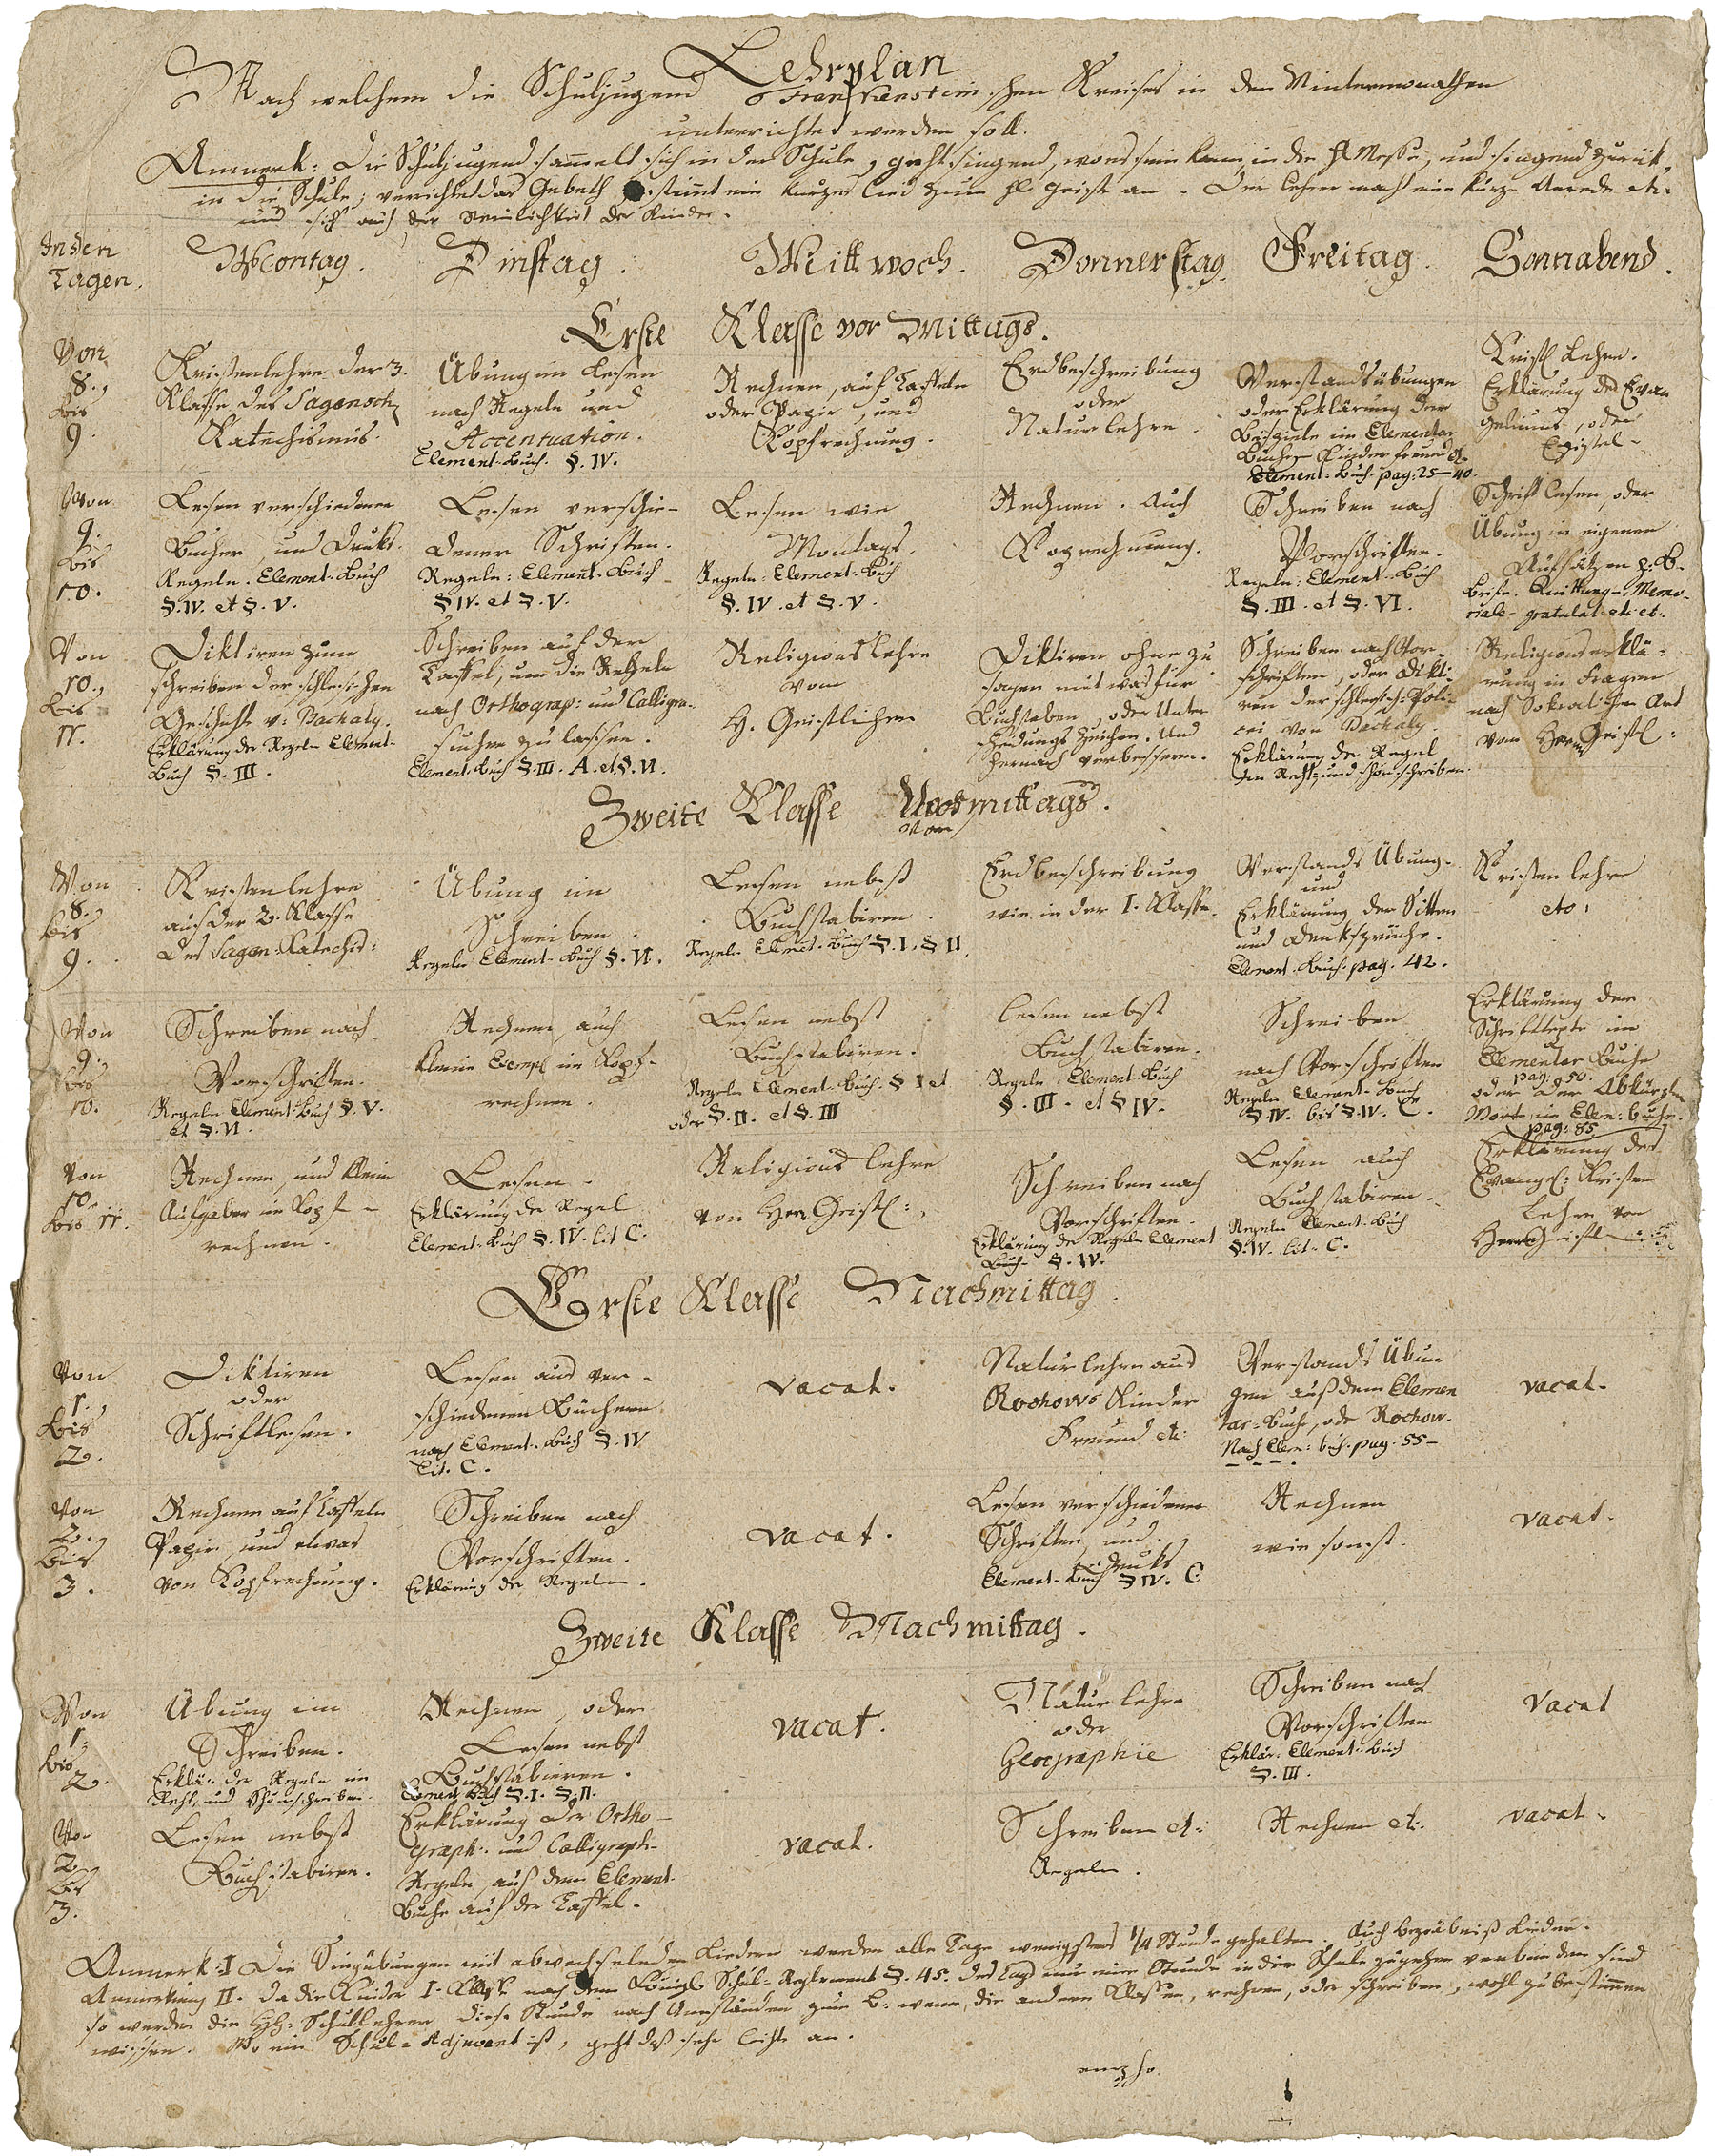 Lehrplan
Nach welchem die Schuljugend Frankensteinschen Kreises in den Wintermonathen
unterrichtet werden soll.
Anmerk: Die Schuljugend samelt sich in der Schule, geht singend, wo es sein kan, in die Hl Messe, und singend zurük
in die Schule, verrichtet das Gebeth stimt ein kurzes Lied zum hl Geist an. Der Lehrer macht eine kurze Anrede etc.
und sieht auf der Reinlichkeit der Kinder.
In den
Tagen.
Montag.
Dinstag.
Mittwoch.
Donnerstag.
Freitag.
Sonnabend.
Erste Klasse vor Mittags.
Von
8.,
bis
9.
Kristenlehre der 3.
Klasse des Saganisch
Katechismus.
Übung im Lesen
nach Regeln und
Accentuation.
Element-Buch. §. IV.
Rechnen, auf Tafeln
oder Papir, und
Kopfrechnung.
Erdbeschreibung
oder
Naturlehre.
Verstandsübungen
oder Erklärung der
Beispiele im Elementar
Buche Kinderfreund
Element-Buch pag: 25-40
Kristl Lehre.
Erklärung des Evan
geliums, oder
Epistel-
Von
9.
bis
10.
Lesen verschiedener
Bücher, und Druks.
Regeln. Element-Buch
§. IV. et §. V.
Lesen verschie-
dener Schriften.
Regeln: Element-Buch
§ IV. et §. V.
Lesen wie
Montags.
Regeln: Element-Buch
§. IV. et §. V.
Rechnen. Auch
Kopfrechnung.
Schreiben nach
Vorschriften.
Regeln: Element-Buch
§. III. et §. VI.
Schrift lesen, oder
Übung in eigenen
Aufsätzen z. B.
Briefe. Quittung- Memo-
riale- gratulat: etc etc.
Von
10.,
bis
11.
Diktiren zum
schreiben der schlesischen
Geschicht v: Bachaly.
Erklärung der Regeln Element-
Buch §. III.
Schreiben auf der
Taffel, um die Regeln
nach Orthograp: und Calligra-
suchen zu lassen.
Element-Buch §. III. A. et §. VI.
Religionslehre
vom
H. Geistlichen
Diktiren ohne zu
sagen mit was für
Buchstaben, oder Unter
scheidungs Zeichen. Und
hernach verbessern.
Schreiben nach Vor-
schriften, oder Dikti-
ren der schlesisch: Poli-
cei von Bachaly.
Erklärung der Regel
den Recht und schönschreiben.
Religionserklä-
rung in Fragen
nach Sokratischer Art
vom Herrn Geistl:
Zweite Klasse Vormittags.
Vor
Von
8.,
bis
9.
Kristenlehre
aus der 2. Klasse
des Sagan: Katechis:
Übung im
Schreiben.
Regeln Element-Buch §. VI.
Lesen nebst
Buchstabiren.
Regeln Element-Buch §. I, § II.
Erdbeschreibung
wie in der I. Klasse.
Verstands Übung-
und
Erklärung der Sitten
und Denksprüche.
Element-Buch pag. 42.
Kristenlehre
etc.
Von
9.
bis
10.
Schreiben nach
Vorschriften.
Regeln Element-Buch §. V.
et §. VI.
Rechnen, auch
kleine Exempl im Kopf-
rechnen.
Lesen nebst
Buchstabiren.
Regeln Element-Buch. § I et
oder §. II. et §. III
Lesen nebst
Buchstabiren.
Regeln. Element-Buch
§. III. et § IV.
Schreiben
nach Vorschriften
Regeln Element-Buch
§. IV. bis §. IV. C.
Erklärung der
Schrifttexte im
Elementar Buche
pag. 50.
oder der Abkürzten
Worte im Elem: buche.
pag: 85
Von
10.
bis 11.
Rechnen, und kleine
Aufgaben im Kopf-
rechnen.
Lesen-
Erklärung der Regel
Element-Buch §. IV. lit C.
Religions lehre
von Herr Geistl:
Schreiben nach
Vorschriften.
Erklärung der Regeln Element
Buch- §. IV.
Lesen auch
Buchstabiren.
Regeln Element-Buch
§. IV. lit. C.
Erklärung des
Evangel: Kristen
Lehre von
Herr Geistl
Erste Klasse Nachmittag.
Von
1.,
bis
2.
Diktiren
oder
Schriftlesen.
Lesen aus ver-
schiedenen Büchern
nach Element-Buch §. IV
Lit. C.
vacat.
Naturlehre aus
Rochows Kinder
Freund etc:
Verstands Übun
gen auß dem Elemen
tar-Buche, oder Rochow.
Nach Elem: buch. pag. 55-
vacat.
Von
2.
bis
3.
Rechnen auf Taffeln
Papir und etwas
von Kopfrechnung.
Schreiben nach
Vorschriften.
Erklärung der Regeln.
vacat.
Lesen verschiedener
Schriften, und
Druks
Element-Buch § IV. C
Rechnen
wie sonst.
vacat.
Zweite Klasse Nachmittag.
Von
1.
bis
2.
Übung im
Schreiben.
Erklär: der Regeln im
Recht, und Schönschreiben.
Rechnen, oder
Lesen nebst
Buchstabieren.
Element Buch §. I. §. II.
vacat.
Naturlehre
oder
Geographie
Schreiben nach
Vorschriften
Erklär: Element-Buch
§. III.
vacat
Von
2
bis
3.
Lesen nebst
Buchstabiren.
Erklärung der Ortho-
graph: und Calligraph-
Regeln, auß dem Element-
Buche auf der Taffel.
vacat.
Schreiben etc:
Regeln.
Rechnen etc:
vacat.
Anmerk: I Die Singübungen mit abwechselnden Liedern werden alle Tage wenigstens 1/4 Stunde gehalten. Auch begräbniß Lieder.
Anmerkung II. Da die Kinder I. Klasse nach dem Königl. Schul-Reglement §. 45. des Tags nur eine Stunde in die Schule zugehen verbunden sind
so werden die HH: Schullehrer diese Stunde nach Umständen zum B: wenn die andern Klassen, rechnen, oder schreiben, wohl zu bestimmen
wissen. Wo ein Schul-Adjuvant ist, geht daß sehr leicht an.